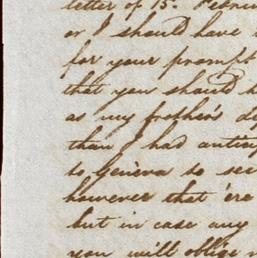 letter of 15.
or I should have
for your prompt
that you should
as my frother's
than I had
to Geneva to
however that 'ere
but in case any
you will oblige